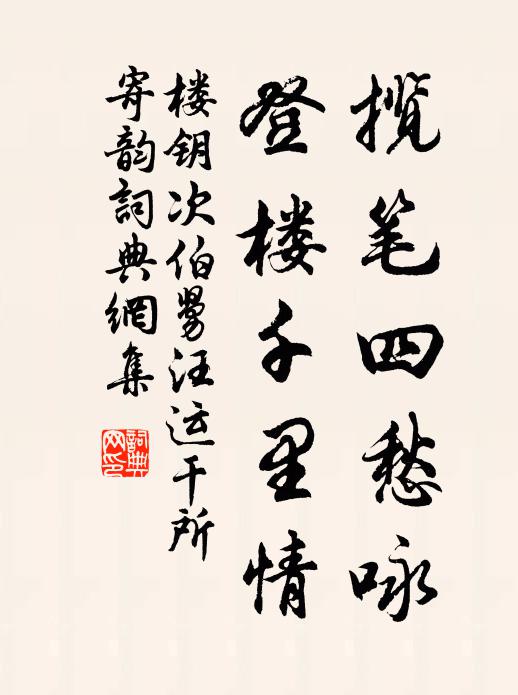 揽笔四愁咏
登楼千里情
楼钥次伯舅汪运干所
寄韵词典網集
詞典
网印